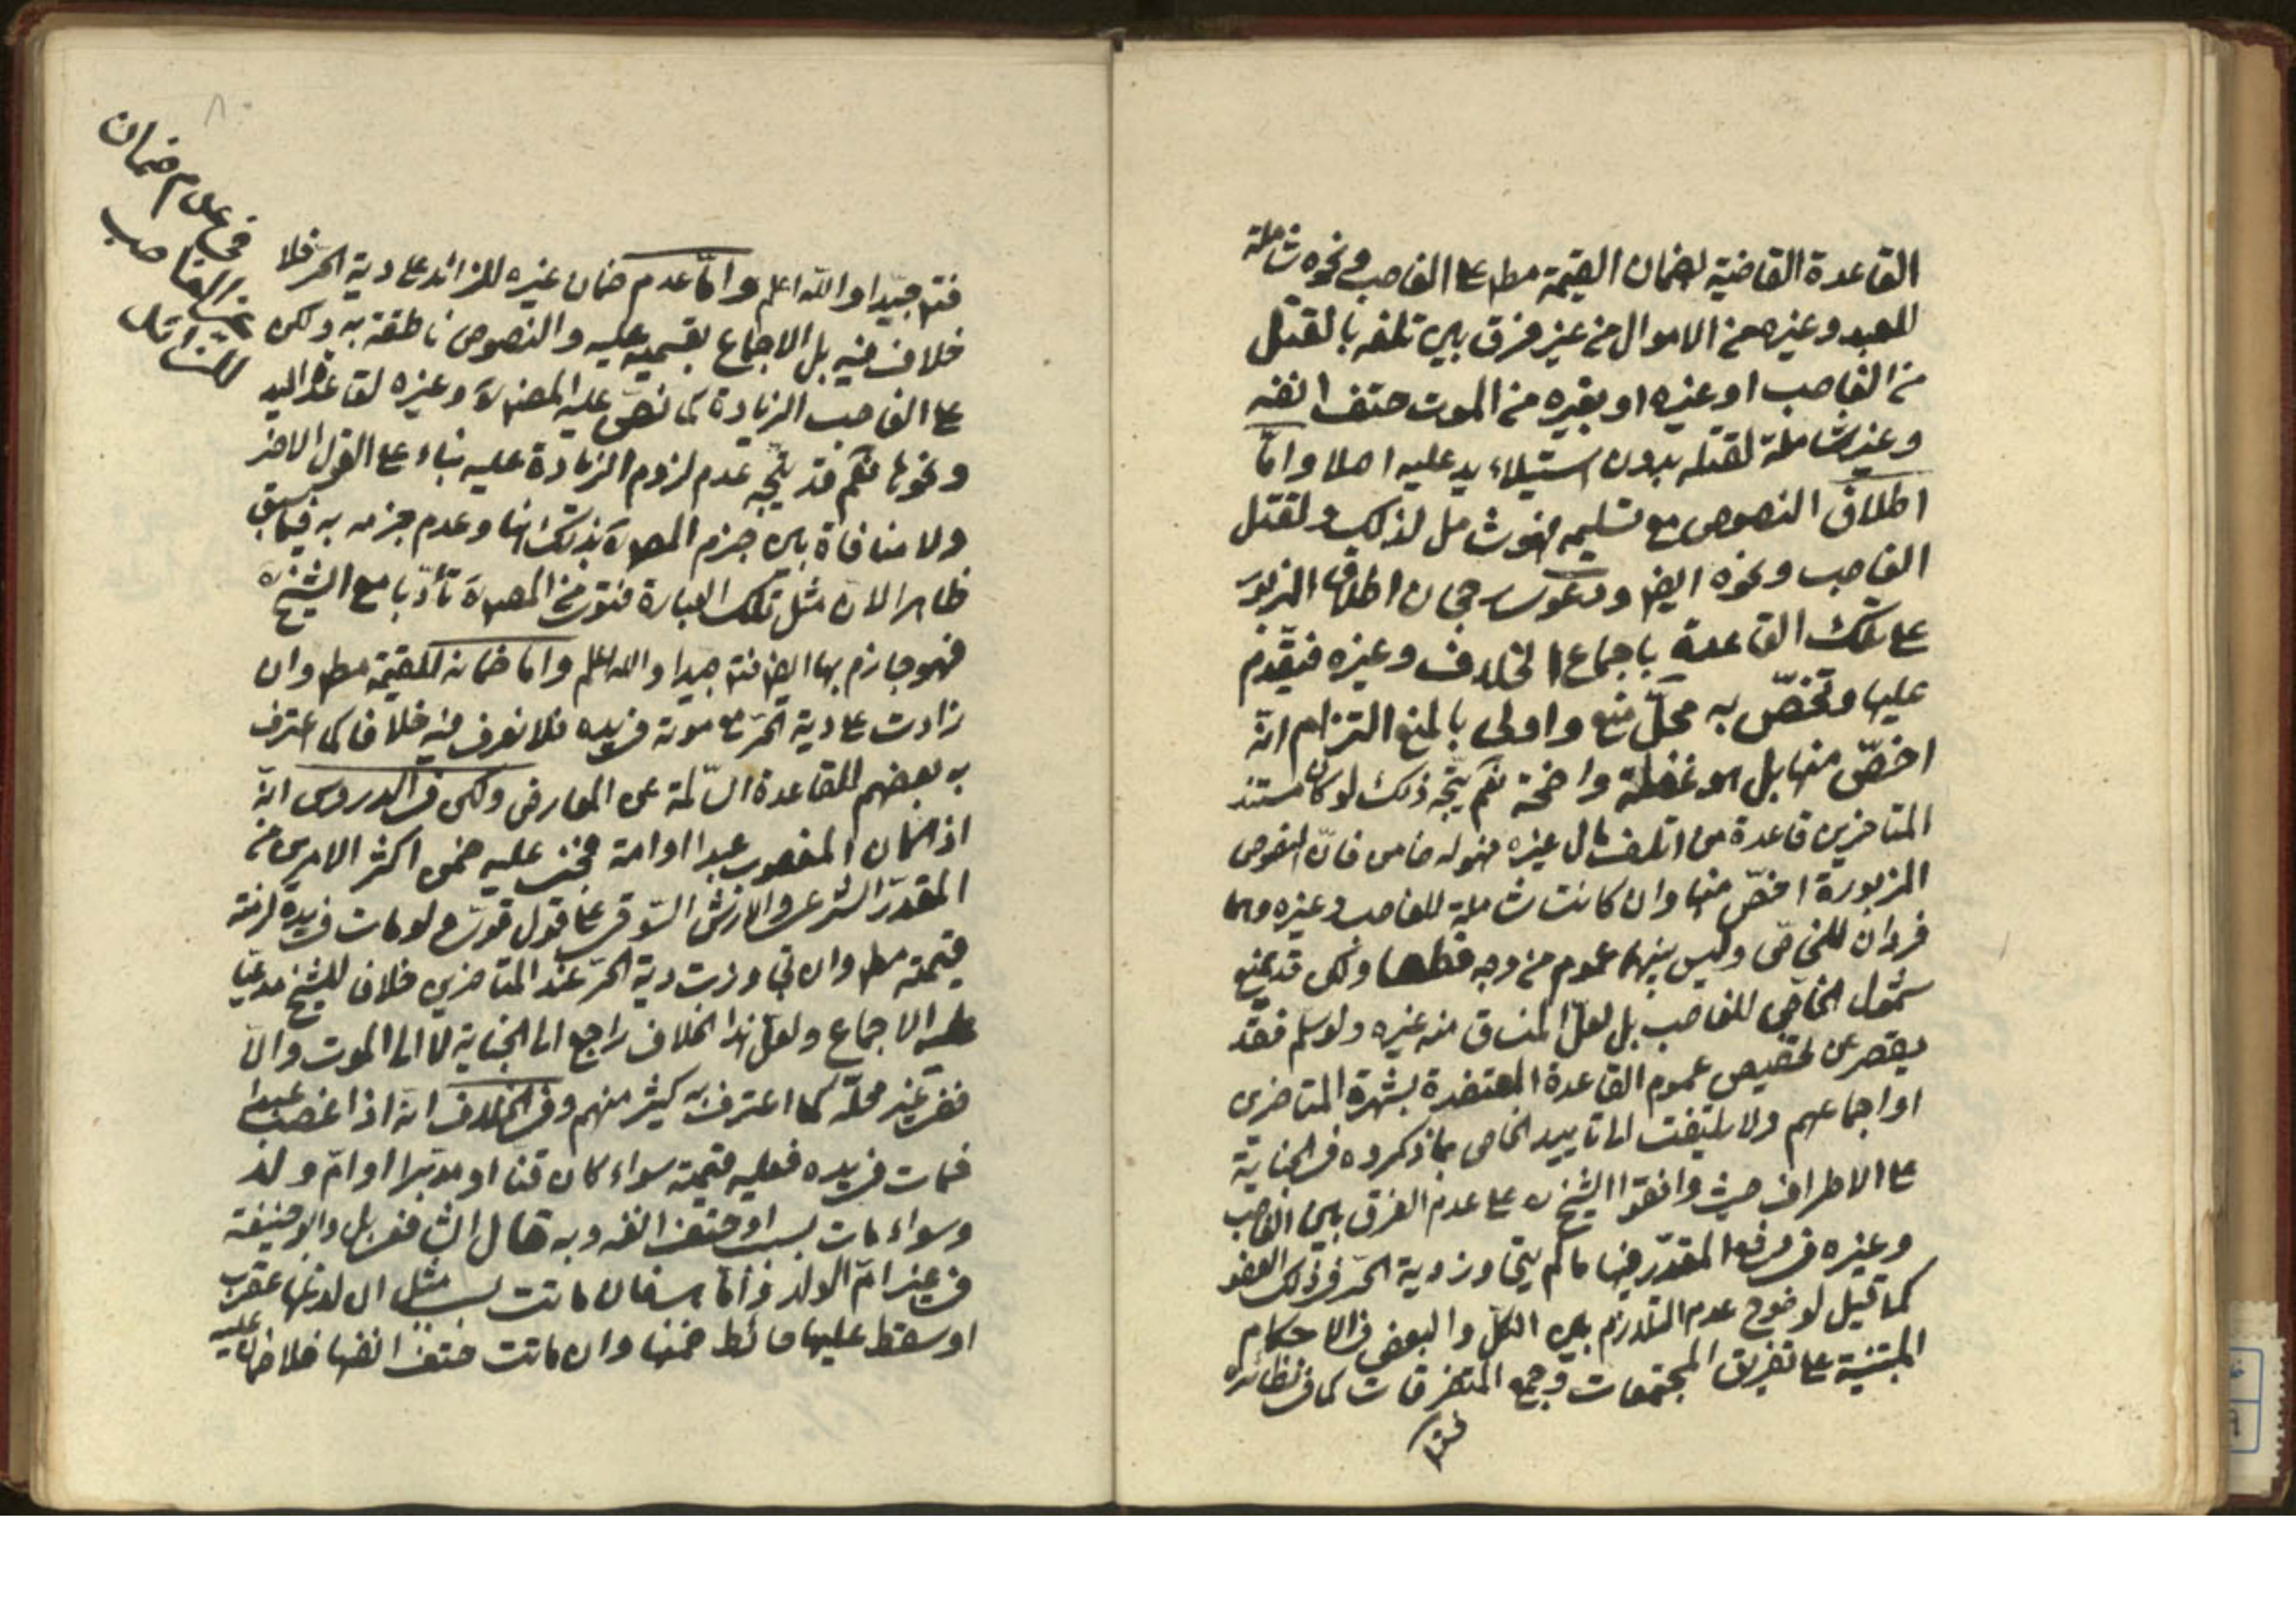 القاعدة القاضية لضمان القيمة مط على الغاصب ونحوه شاملة
للعبد وغيره من الاموال من غير فرق بين تلفه بالقتل
من الغاصب او غيره او بغيره من الموت حتف انفه
وغير شاملة لقتله بدون استيلاء يد عليه اصلا وامّا
اطلاق النصوص مع تسليمه فهو شامل لذلك ولقتل
الغاصب ونحوه ايضا ودعوى رجحان اطلاق المزبور
على تلك القاعدة باجماع الخلاف وغيره فيقدّم
عليها وتخصّ به محلّ منع واولى بالمنع التزام انّه
اخصّ منها بل هو غفلة واضحة نعم يتّجه ذلك لو كان مستند
المتاخرين قاعدة من اتلف مال غيره فهو له ضامن فانّ النصوص
المزبورة اخصّ منها وان كانت شاملة للغاصب وغيره وهما
فردان للخاصّ وليس بينهما عموم من وجه قطعا ولكن قد يمنع
شمول الخاصّ للغاصب بل لعلّ المنساق منه غيره ولو سلم فقد
يقصر عن تخصيص عموم القاعدة المعتضدة بشهرة المتاخرين
او اجماعهم ولا يلتفت الى تاييد الخاص بما ذكروه في الجناية
على الاطراف حيث وافقوا الشيخ ره على عدم الفرق بين الغاصب
وغيره في المقدّر فيها ما لم يتجاوز دية الحّر في ذلك العضو
كما قيل لوضوح عدم التلازم بين الكلّ والبعض في الاحكام
المبتنية على تفريق المجتمعات وجمع المتفرقات كما في نظائره
فتم جيّدا والله اعلم وامّا عدم ضمان غيره للزائد على دية الحّر فلا
خلاف فيه بل الاجماع بقسميه عليه والنصوص ناطقة به ولكن
على الغاصب الزيادة كما نصّ عليه المص ره وغيره لقاعدة اليد
ونحوها نعم قد يتّجه عدم لزوم الزيادة عليه بناء على القول الاخر
ولا منافاة بين جزم المص ره بذلك هنا وعدم جزمه به فيما سبق
ظاهرا لان مثل تلك العبارة فتوى من المص ره تأدّبا مع الشيخ ره
فهو جازم بها ايضا فتم جيدا والله اعلم واما ضمانه للقيمة مط وان
زادت على دية الحّر مع موته في يده فلا نعرف فيه خلافا كما اعترف
به بعضهم للقاعدة السّالمة عن المعارض ولكن في الدروس انّه
اذا كان المغصوب عبدا او امة فجنى عليه ضمن اكثر الامرين من
المقدّر الشرعي والارش السّوقي على قول قويّ ولو مات في يده لزمته
قيمته مط وان تجاوزت دية الحّر عند المتاخرين خلافا للشيخ مدعيّا
عليه الاجماع ولعلّ هذا الخلاف راجع الى الجناية لا الى الموت والّا
ففي غير محلّه كما اعترف به كثير منهم وفي الخلاف انّه اذا غصب عبدا
فمات في يده فعليه قيمته سواء كان قنا او مدبّرا او امّ ولد
وسواء مات بسبب او حتف انفه وبه قال الشافعي بل وابو حنيفة
في غير امّ الولد وامّا هي فان ماتت بسبب مثل ان لدغتها عقرب
او سقط عليها حائط ضمنها وان ماتت حتف انفها فلا ضمان عليه
في عدم ضمان
غير الغاصب
للزائد